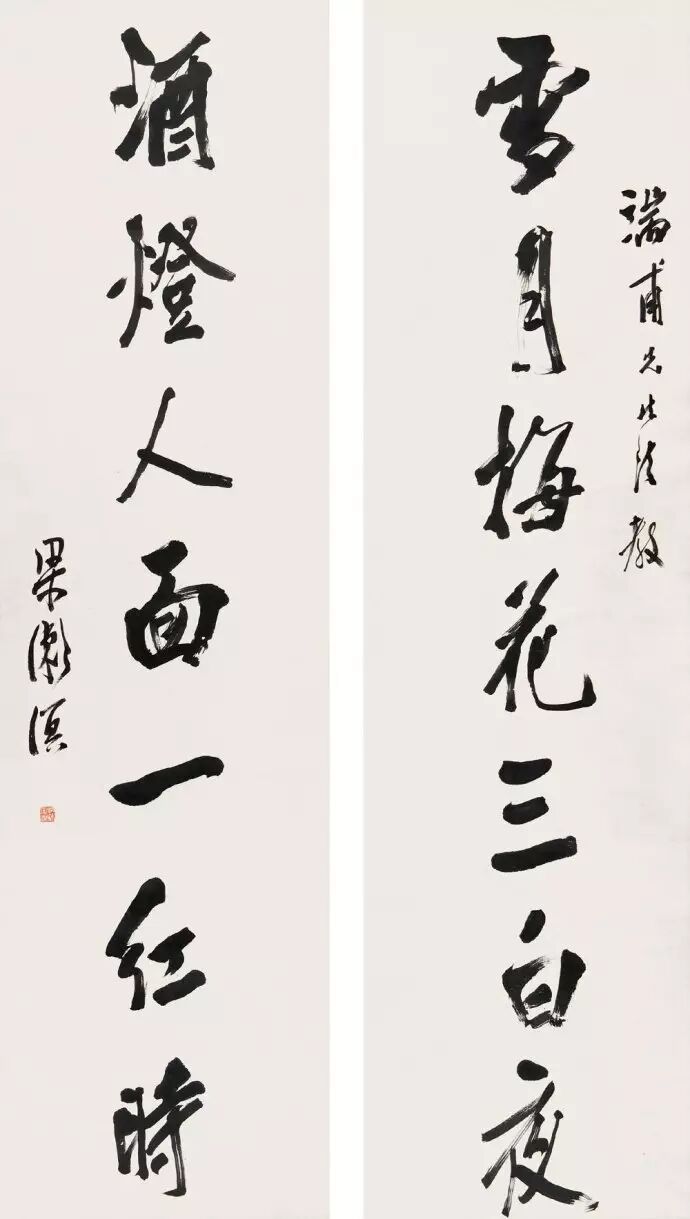 端甫先生法教
雪月梅花三白夜
酒燈人面一红時
梁漱溟